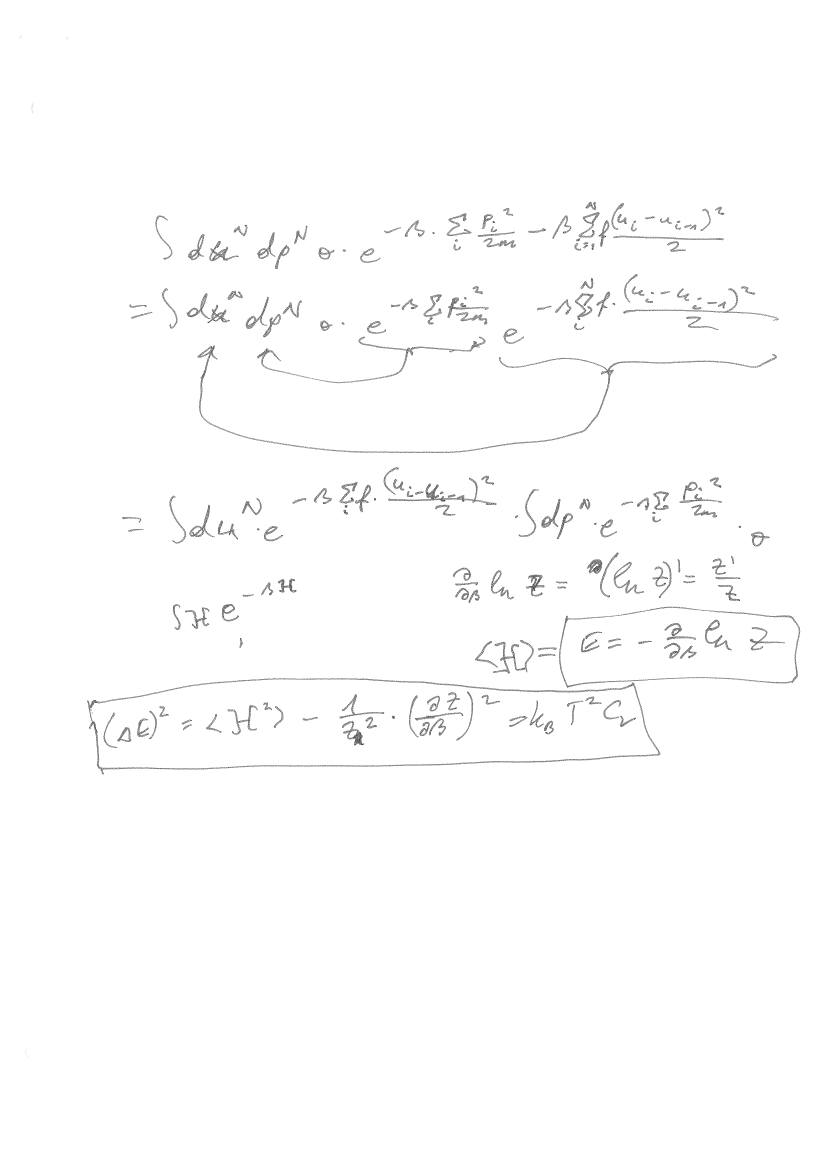 ∫ du^N dp^N σ · e^{-β · Σ_i p_i²/2m - β Σ_{i=1}^N f (u_i - u_{i-1})²/2}
= ∫ du^N dp^N σ · e^{-β Σ_i p_i²/2m} e^{-β Σ_i^N f · (u_i - u_{i-1})²/2}
= ∫ du^N · e^{-β Σ_i f · (u_i - u_{i-1})²/2} · ∫ dp^N · e^{-β Σ_i p_i²/2m} · σ
∂/∂β ln Z = (ln Z)' = Z'/Z
∫ H e^{-βH}
<H> = E = - ∂/∂β ln Z
(ΔE)² = <H²> - 1/Z² · (∂Z/∂β)² = k_B T² C_v